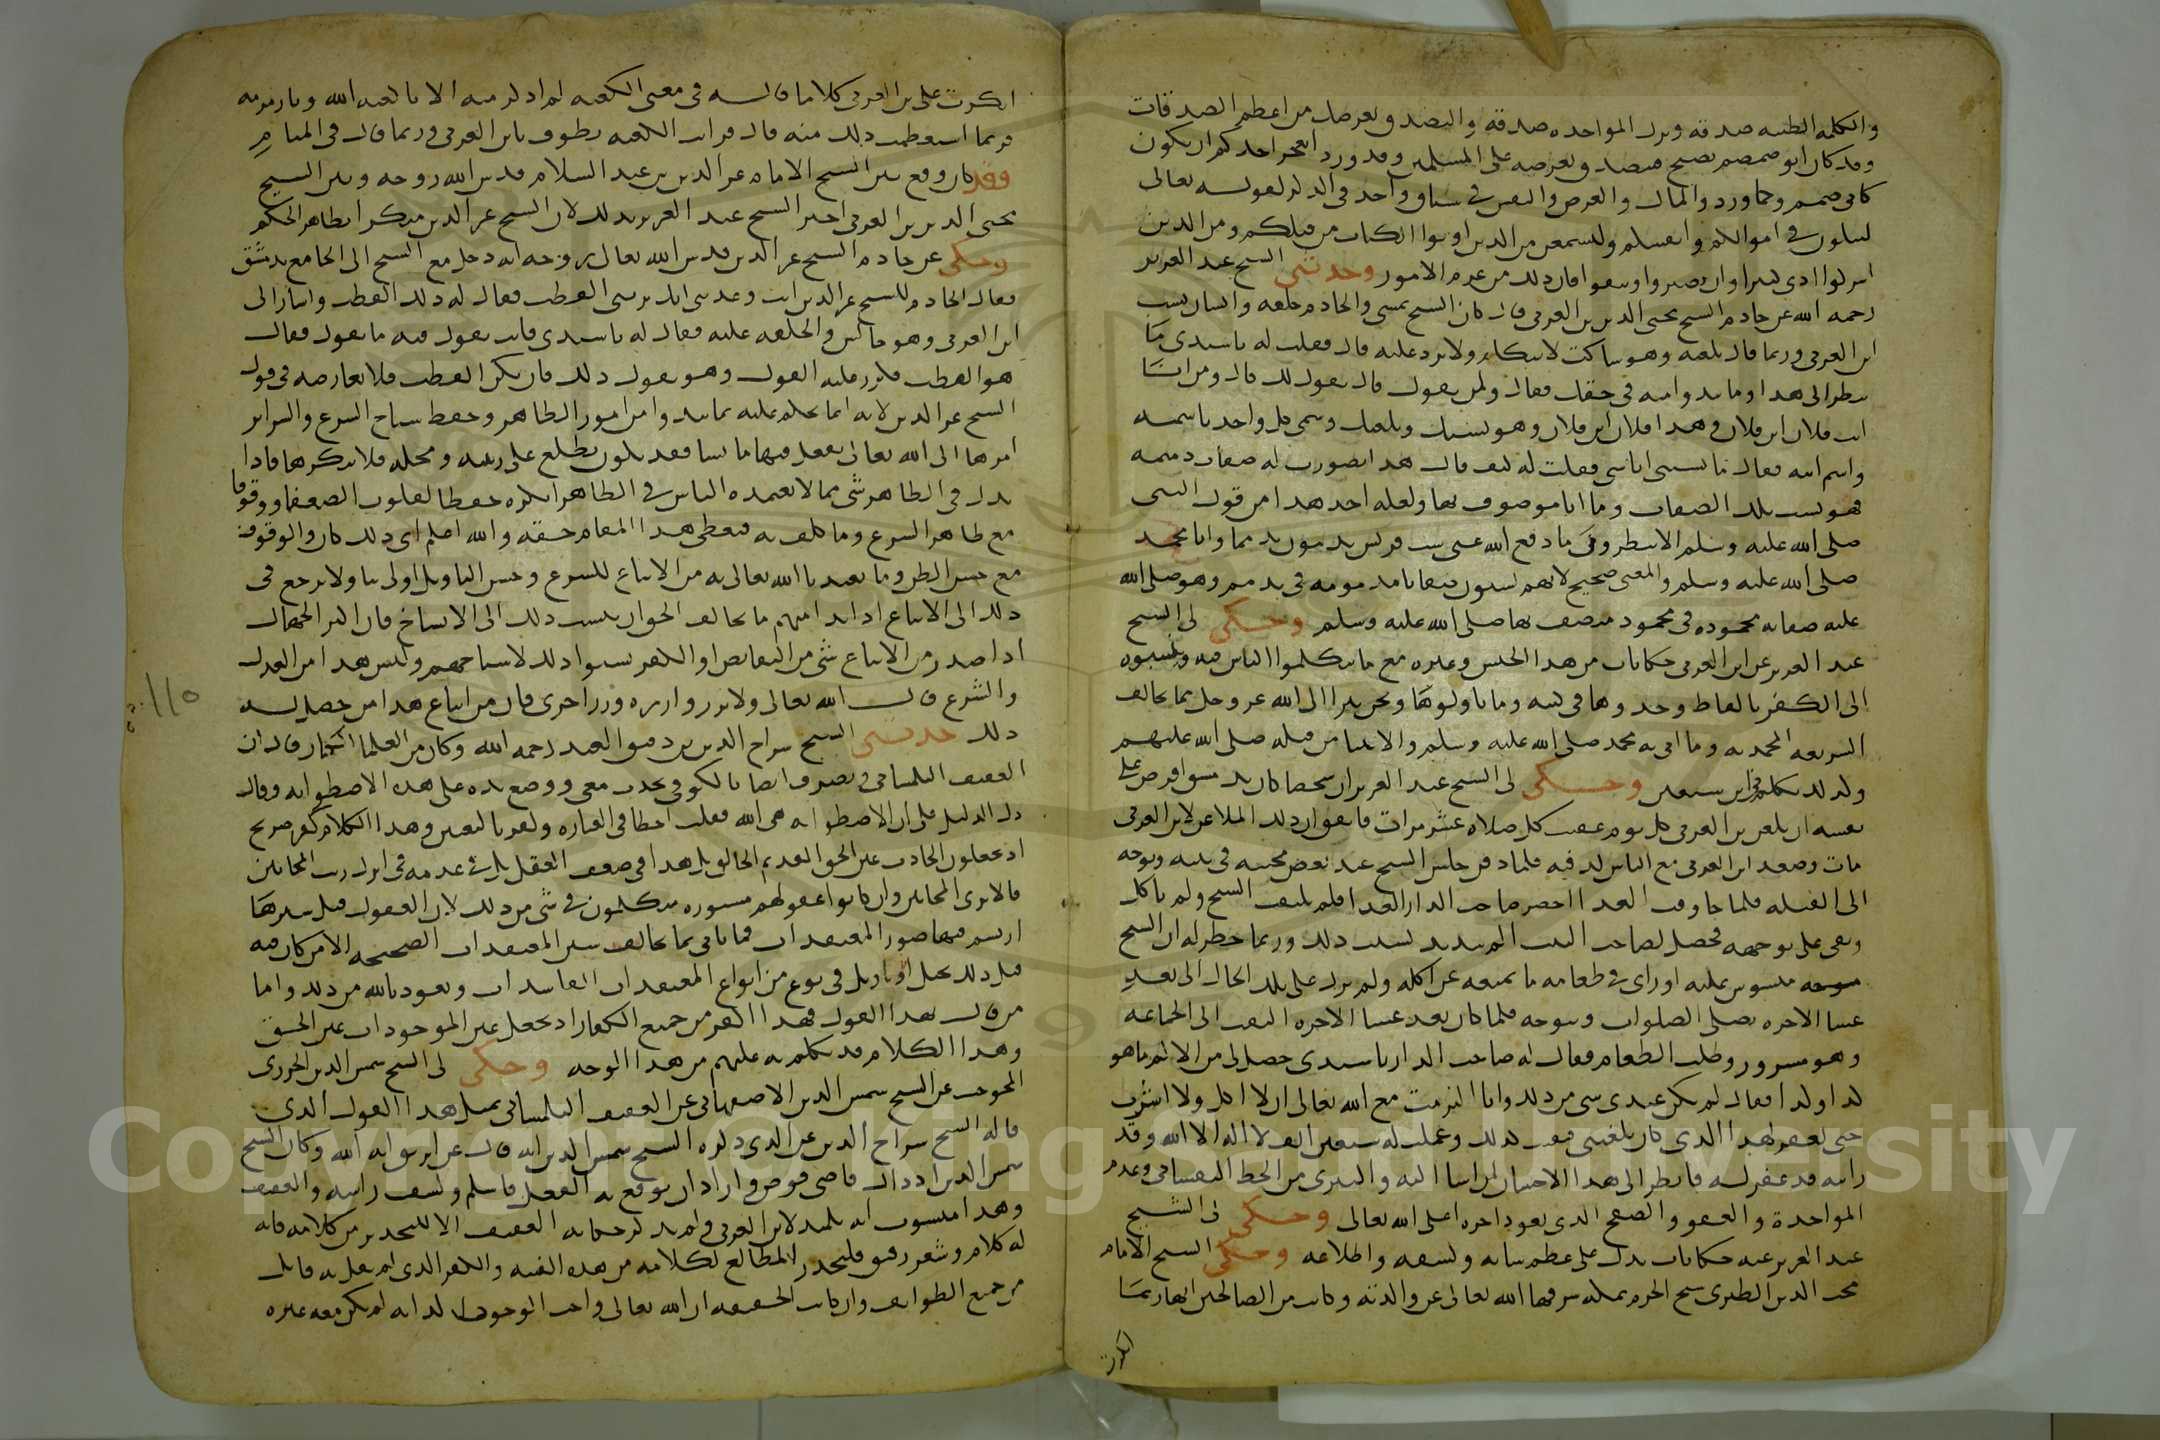 والكلمه الطيبه صدقه وترك المواخده صدقه والتصدق بعرضك من اعظم الصدقات
وقد كان ابو ضمضم يصبح فيتصدق بعرضه على المسلمين وقد ورد ايعجز احدكم ان يكون
كابي ضمضم وحما ورد والمال والعرض والنفس في سياق واحد في الذكر لقوله تعالى
لتبلون في اموالكم وانفسكم ولتسمعن من الذين اوتوا الكتاب من قبلكم ومن الذين
اشركوا اذى كثيرا وان تصبروا وتتقوا فان ذلك من عزم الامور وحدثني الشيخ عبد العزيز
رحمه الله عن خادم الشيخ محيي الدين بن العربي قال كان الشيخ يمشي والخادم خلفه وانسان يسب
ابن العربي وربما قال يلعنه وهو ساكت لا يتكلم ولا يرد عليه قال فقلت له يا سيدي ما
تنظر الى هذا وما يبدوا منه في حقك فقال ولمن يقول قال يقول لك قال ومن انا
انت فلان ابن فلان وهذا فلان ابن فلان وهو يسبك ويلعنك وسمى كل واحد باسمه
واسم ابيه فقال ما يسبني انا سي فقلت له كيف قال هذا تصورت له صفات دميمه
فهو يسب تلك الصفات وما انا موصوف بها ولعله احد هذا من قول النبي
صلى الله عليه وسلم الا تنظروني ما دفع الله عني سب قريش يدمون مدمما وانا محمد
صلى الله عليه وسلم والمعنى صحيح لانهم يسبون صفاتا مدمومه في مدمم وهو صلى الله
عليه صفاته محموده في محمود متصف بها صلى الله عليه وسلم وحكى لي الشيخ
عبد العزيز عن ابن العربي حكايات من هذا الجنس وغيره مع ما يتكلموا الناس فيه وينسبوه
الى الكفر بالفاظ وجدوها في كتبه وما تاولوها ونحن نبرا الى الله عز وجل مما يخالف
الشريعه المحمديه وما اتى به محمد صلى الله عليه وسلم والانبيا من قبله صلى الله عليهم
ولذلك تكلم في ابن سبعين وحكى لي الشيخ عبد العزيز ان شخصا كان بدمشق افرض على
نفسه ان يلعن ابن العربي كل يوم عقيب كل صلاه عشر مرات فاتفق ان ذلك الملاعن لابن العربي
مات وصعد ابن العربي مع الناس لدفنه فلما دفن جلس الشيخ عند بعض محبيه في بيته وتوجه
الى القبله فلما جا وقت الغدا احضر صاحب الدار الغدا فلم يلتفت الشيخ ولم ياكل
وبقي على توجهه فحصل لصاحب البيت الم شديد بسبب ذلك وربما خطر له ان الشيخ
متشوش عليه او راى في طعامه ما يمنعه عن اكله ولم يزل على تلك الحال الى بعد
عشا الاخره يصلى الصلوات ويتوجه فلما كان بعد عشا الاخره التفت الى الجماعه
وهو مسرور وطلب الطعام فقال له صاحب الدار يا سيدي حصل لي من الالم ما هو
لذا ولذا فقال لم يكن عندي شي من ذلك وانا التزمت مع الله تعالى ان لا اكل ولا اشرب
حتى يغفر لهذا الذي كان يلعنني فقعدت لذلك وعملت له سبعين الف لا اله الا الله وقد
رايته قد غفر له فانظر الى هذا الاحسان لمن اسا اليه والتبري من الحظ النفساني وعدم
المواخدة والعفو والصفح الذي يعود اجره على الله تعالى وحكى لي الشيخ
عبد العزيز عنه حكايات تدل على عظم شانه وكشفه واطلاعه وحكى الشيخ الامام
محب الدين الطبري شيخ الحرم بمكه شرفها الله تعالى عن والدته وكانت من الصالحين انها ربما
انكرت
انكرت على ابن العربي كلاما قاله في معنى الكعبه لم اذكر منه الا يا كعبة الله ويا زمزمه
فربما استعظمت ذلك منه قال فرات الكعبه تطوف بابن العربي وربما قال في المنام
وقد كان وقع بين الشيخ الامام عز الدين بن عبد السلام قدس الله روحه وبين الشيخ
محيي الدين بن العربي اخبر الشيخ عبد العزيز بذلك لان الشيخ عز الدين منكرا بظاهر الحكم
وحكى عن خادم الشيخ عز الدين قدس الله تعالى روحه انه دخل مع الشيخ الى الجامع بدمشق
فقال الخادم للشيخ عز الدين انت وعدتني انك تريني القطب فقال له ذلك القطب واشار الى
ابن العربي وهو جالس والحلقه عليه فقال له يا سيدي فانت تقول فيه ما تقول فقال
هو القطب فكرر عليه القول وهو يقول ذلك فان يكن القطب فلا معارضه في قول
الشيخ عز الدين لانه انما يحكم عليه بما يبدوا من امور الظاهر وحفظ سياج الشرع والسراير
امرها الى الله تعالى يفعل فيها ما يشا فقد يكون يطلع على رتبته ومحله فلا ينكرها فاذا
بدا في الظاهر شي مما لا يعهده الناس في الظاهر انكره حفظا لقلوب الضعفا ووقوفا
مع ظاهر الشرع وما كلف به فيعطي هذا المقام حقه والله اعلم اي ذلك كان والوقوف
مع حسن الظن وما تعبدنا الله تعالى به من الاتباع للشرع وحسن التاويل اولى بنا ولا نرجع في
ذلك الى الاتباع اذا بدا منهم ما يخالف الحق ان ينسب ذلك الى الاشياخ فان اكثر الجهال
اذا صدر من الاتباع شي من النقايص او الكفر نسبوا ذلك لاشياخهم وليس هذا من العدل
والشرع قال الله تعالى ولا تزر وازرة وزر اخرى فان من اتباع هذا من حصل له
ذلك حدثني الشيخ سراج الدين بن دقيق العيد رحمه الله وكان من العلما الكبار قال ان
العفيف التلمساني تصرف ايضا بالكوفي يحدث معي ووضع يده على هذه الاصطوانه وقال
دل الدليل على ان الاصطوانه هي الله فقلت اخطا في العباره وكفر بالتعيين وهذا الكلام كفر صريح
اذ يجعلون الحادث عين الحق القديم الخالق بل هذا في ضعف العقل
فالا ترى المجانين وان كانوا عقولهم مستوره يتكلمون في شي من ذلك لان العقول قبل سترها
ارتسم فيها صور المعتقدات فما ياتي بما يخالف ستر المعتقدات الصحيحه الا من كان فيه
قبل ذلك نوع من انواع المعتقدات الفاسدات ونعوذ بالله من ذلك واما
من قال بهذا القول فهذا اكفر من جميع الكفار اذ يجعل عين الموجودات عين الحق
وهذا الكلام قد تكلم به عليهم من هذا الوجه وحكى لي الشيخ شمس الدين الجزري
عن الشيخ شمس الدين الاصفهاني عن العفيف التلمساني بمثل هذا القول الذي
قاله الشيخ سراج الدين عن الذي ذكره الشيخ شمس الدين انه قال عن ابريق انه الله وكان الشيخ
شمس الدين اذ ذاك قاضي قوص واراد ان يوقع به الفعل فاسلم وكشف راسه والعفيف
وهذا منسوب انه تلميذ لابن العربي ولم نذكر حكاية العفيف الا للتحذير من كلامه فانه
له كلام وشعر رقيق فليحذر المطالع لكلامه من هذه الفتنه والكفر الذي لم يقل به قايل
من جميع الطوايف وان كانت الحقيقه ان الله تعالى واجب الوجود لذاته لم يكن معه غيره
١١٥
Copyright © King Saud University